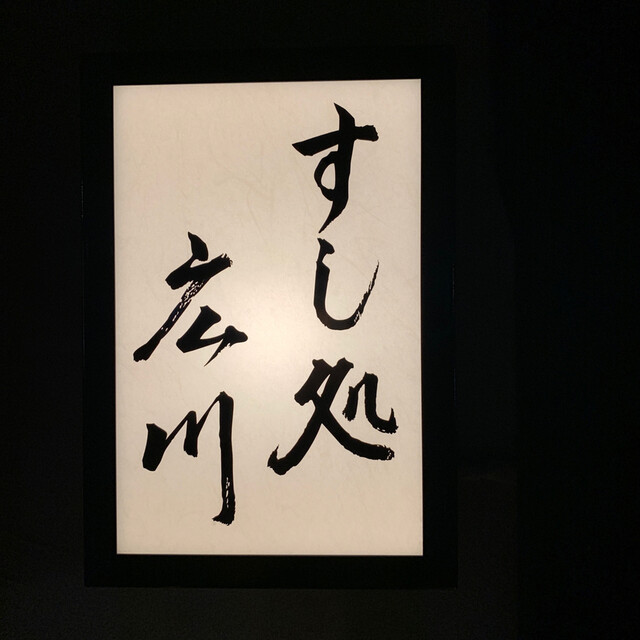 すし処
広川